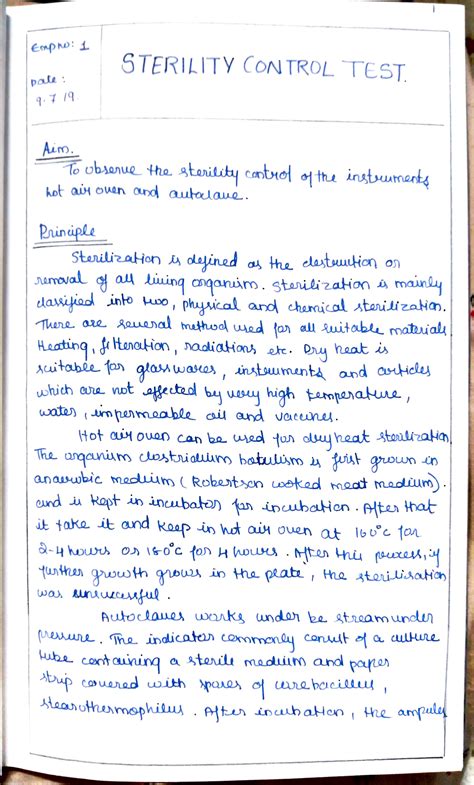 1
Exp no: 1
STERILITY CONTROL TEST.
Date:
9.7.19.
Aim.
To observe the sterility control of the instruments
hot air oven and autoclave.
Principle
Sterilization is defined as the destruction or
removal of all living organism. Sterilization is mainly
classified into two, physical and chemical sterilization.
There are several method used for all suitable materials
Heating, filteration, radiations etc. Dry heat is
suitable for glasswares, instruments and articles
which are not effected by very high temperature,
water, impermeable oil and vaccines.
Hot air oven can be used for dry heat sterilization.
The organism clostridium botulism is first grown in
anaerobic medium (Robertson cooked meat medium).
and is kept in incubator for incubation. After that
it take it and keep in hot air oven at 160°c for
2-4 hours or 160°c for 4 hours. After this process, if
further growth grows in the plate, the sterilisation
was unsuccessful.
Autoclaves works under be stream under
pressure. The indicator commonly consist of a culture
tube containing a sterile medium and paper
strip covered with spores of
stearothermophilus. After incubation, the ampules